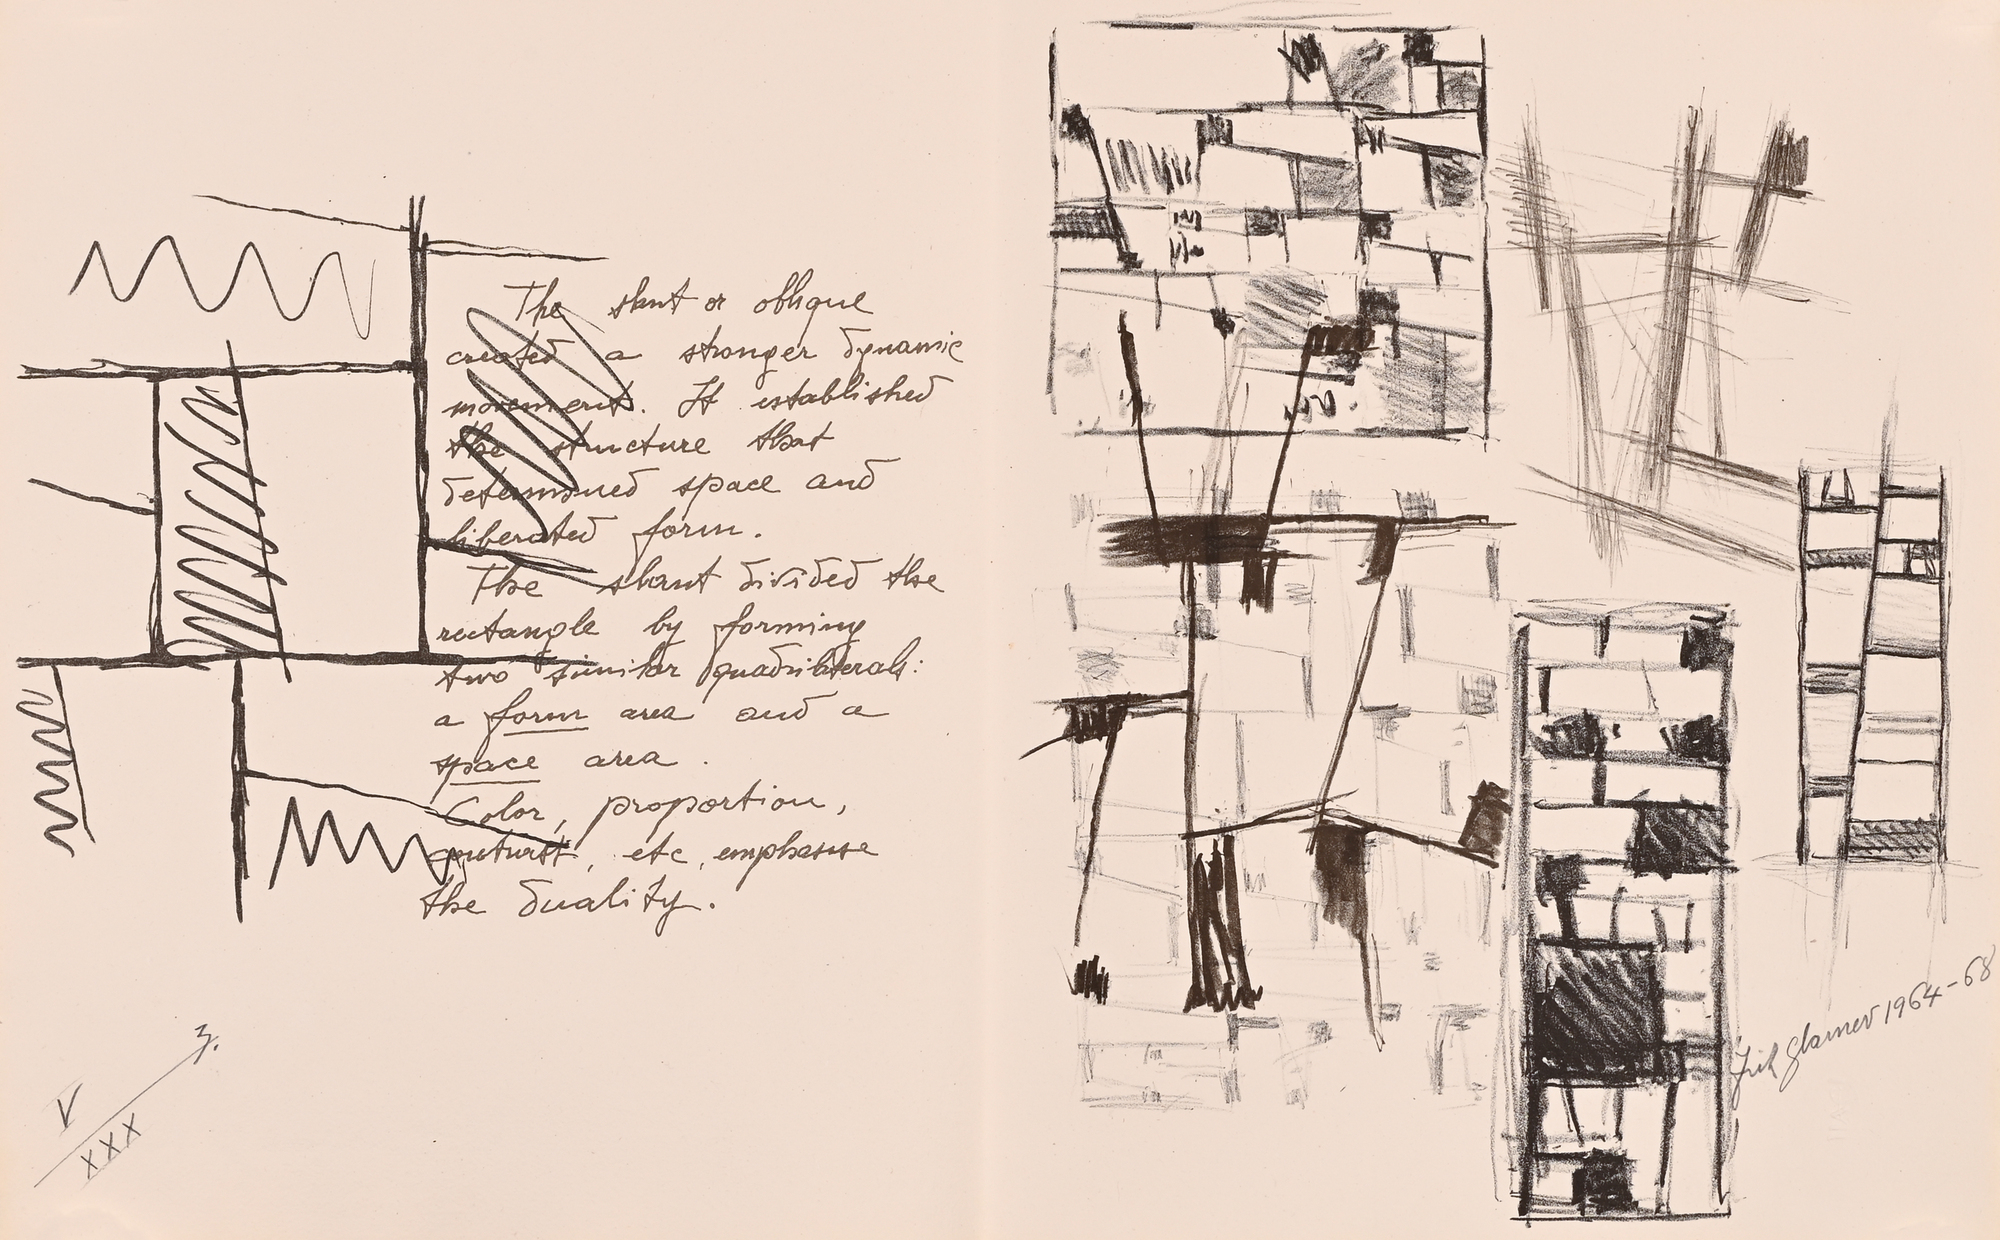 The slant or oblique
created a stronger dynamic
movement. It established
the structure that
determined space and
liberated form.
The slant divided the
rectangle by forming
two similar quadrilaterals:
a form area and a
space area.
Color, proportion,
contrast, etc, emphasise
the duality.
3.
V
XXX
Fritz Glarner 1964-68